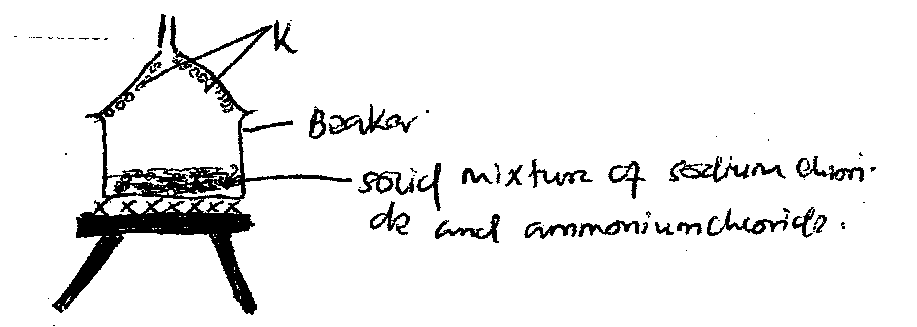 K
Beaker
solid mixture of sodium chlori-
de and ammonium chloride.